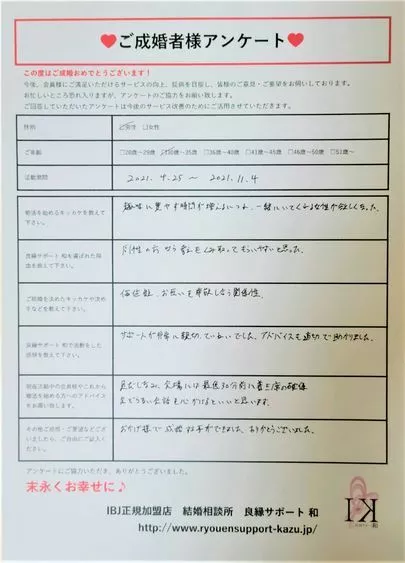 ♥ご成婚者様アンケート♥
この度はご成婚おめでとうございます！
今後、会員様にご満足いただけるサービスの向上、提供を目指し、皆様のご意見・ご要望をお伺いしております。
お忙しいところ恐れ入りますが、アンケートのご協力をお願い致します。
ご回答していただいたアンケートは今後のサービス改善のためにご活用させていただきます。
性別 ☑男性 □女性
ご年齢 □20歳～29歳 ☑30歳～35歳 □36歳～40歳 □41歳～45歳 □46歳～50歳 □51歳～
活動期間 2021.4.25 ～ 2021.11.4
婚活を始めるキッカケを教えて
下さい。
趣味に費やす時間が増えるにつれ、一緒にいてくれる女性が欲しくなった。
良縁サポート 和を選ばれた理
由を教えて下さい。
男性の方から
もらいやすいと思った。
ご成婚を決めたキッカケや決め
手などを教えて下さい。
価値観、お互いを尊敬し合う関係性。
良縁サポート 和で活動をした
感想を教えて下さい。
サポートが非常に親切、ていねいでした。アドバイスも適切で助かりました。
現在活動中の会員様やこれから
婚活を始める方へのアドバイス
をお願い致します。
身だしなみ、会場には最低30分前に着き
会話も心がけるといいと思います。
その他ご感想・ご要望などござ
いましたら、ご自由にご記入く
ださい。
おかげ様で成婚する事ができました。ありがとうございました。
アンケートにご協力いただき、ありがとうございました。
末永くお幸せに♪
IBJ正規加盟店 結婚相談所 良縁サポート 和
http://www.ryouensupport-kazu.jp/